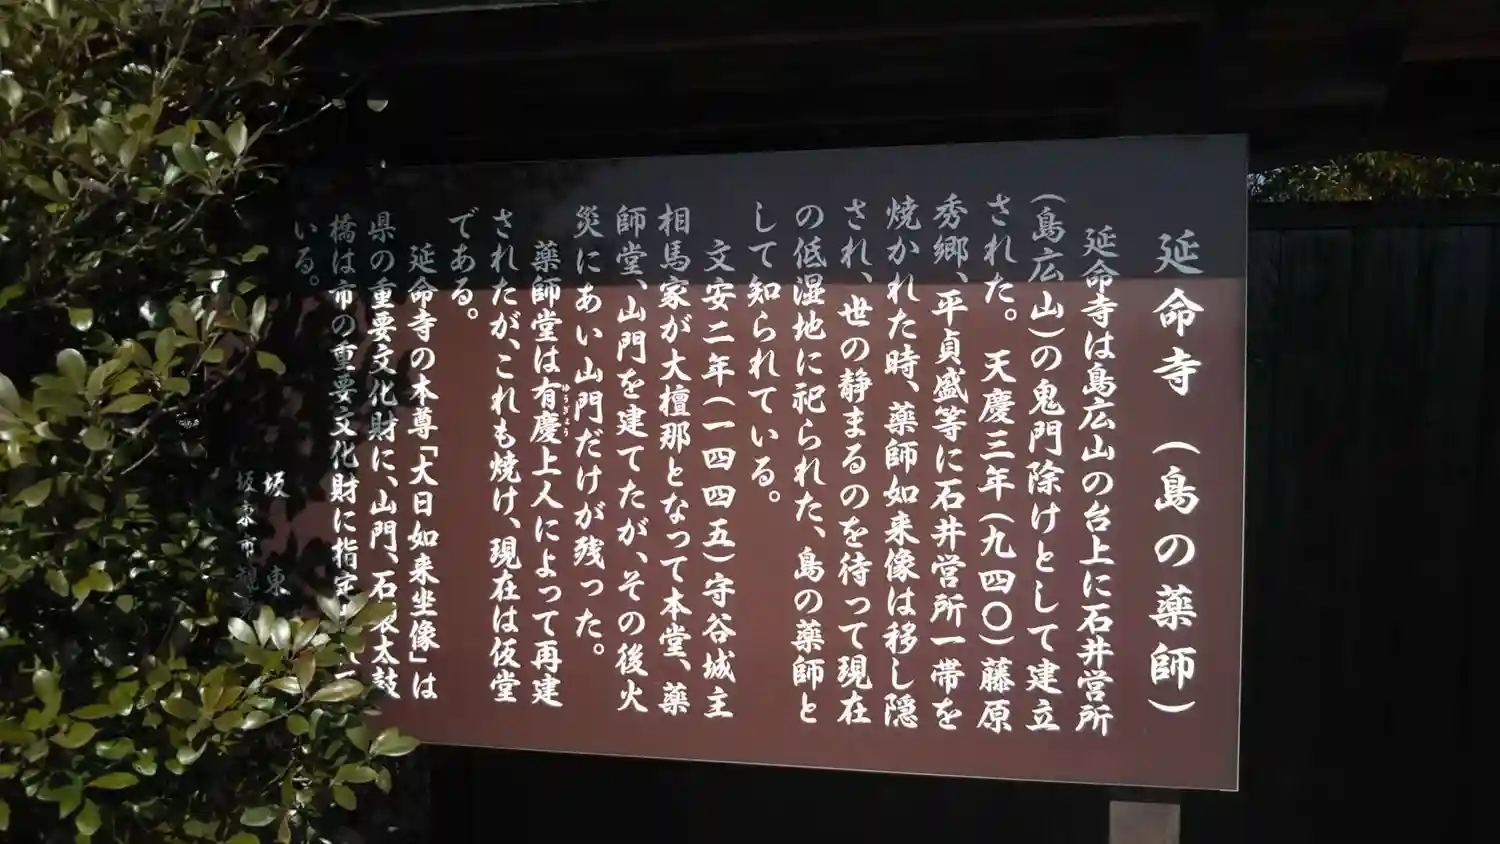 延命寺（島の薬師）
延命寺は島広山の台上に石井営所
（島広山）の鬼門除けとして建立
された。天慶三年（九四〇）藤原
秀郷、平貞盛等に石井営所一帯を
焼かれた時、薬師如来像は移し隠
され、世の静まるのを待って現在
の低湿地に祀られた、島の薬師と
して知られている。
文安二年（一四四五）守谷城主
相馬家が大檀那となって本堂、薬
師堂、山門を建てたが、その後火
災にあい山門だけが残った。
薬師堂は有慶上人によって再建
ゆうぎょう
されたが、これも焼け、現在は仮堂
である。
延命寺の本尊「大日如来坐像」は
県の重要文化財に、山門、石太鼓
橋は市の重要文化財に指定て
いる。
坂東
坂東市観